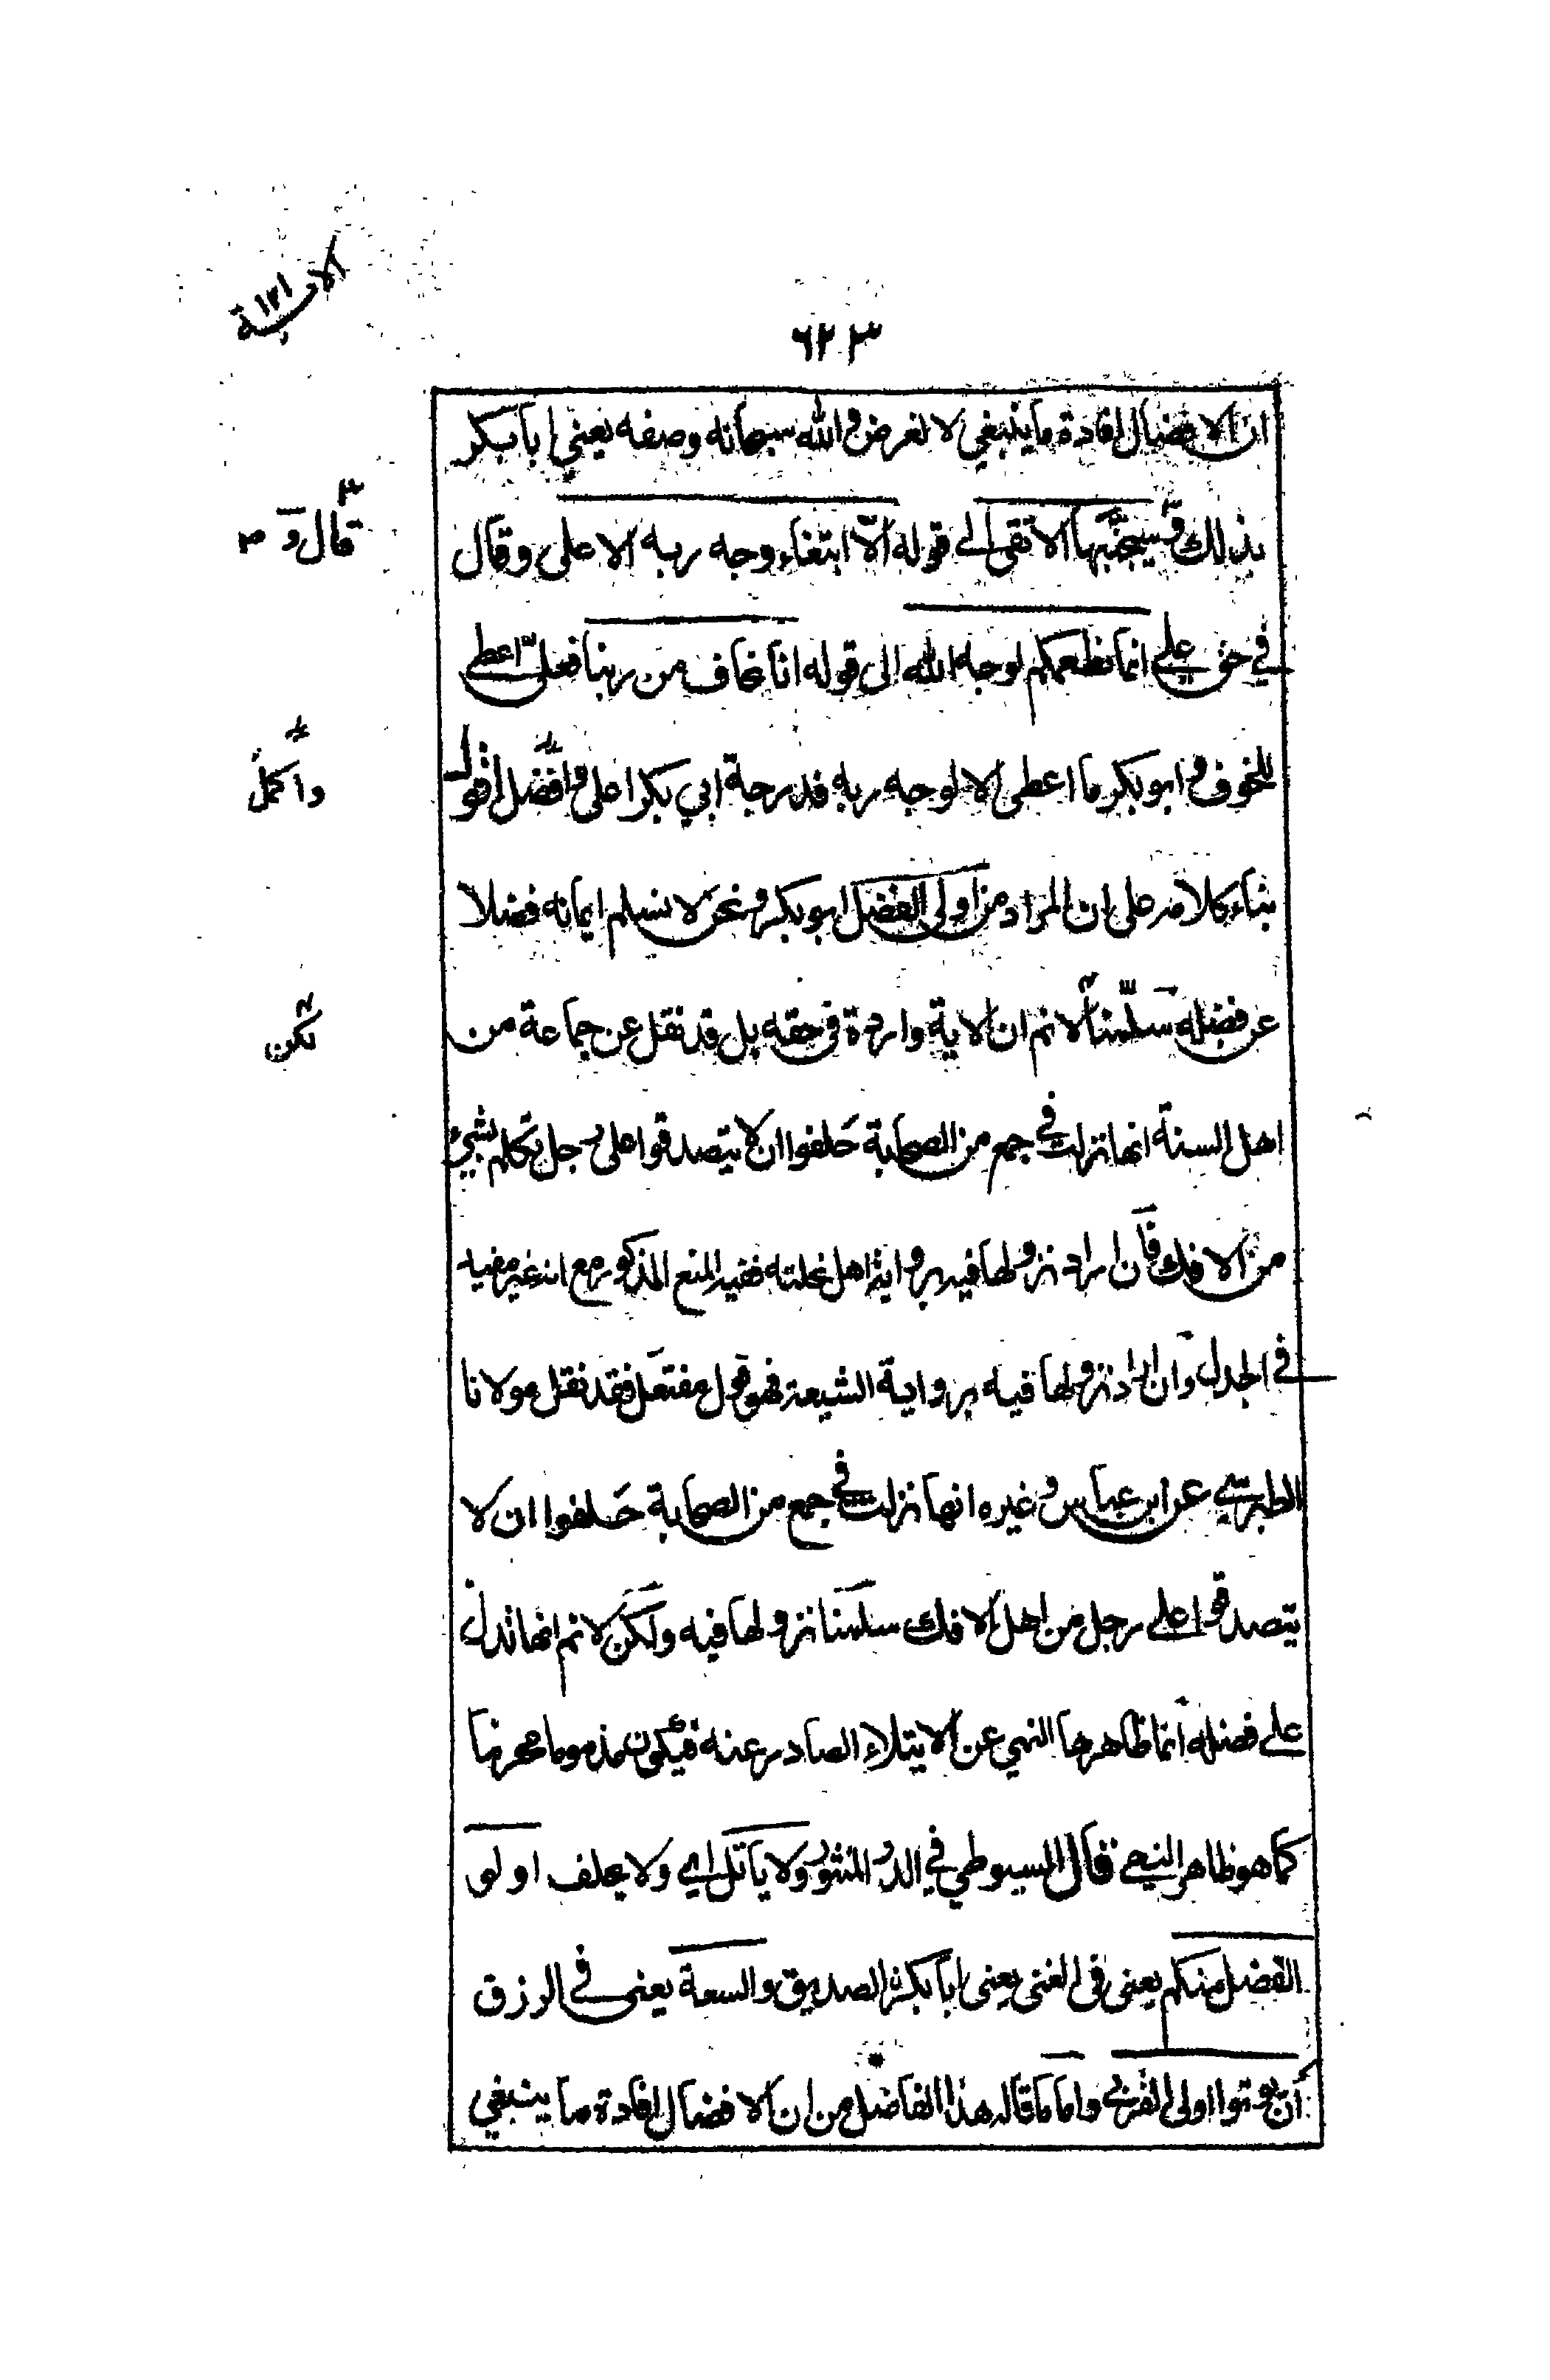 الاية ١٢١
٦٢٣
ان الافضال افادة ما ينبغي لا لغرض والله سبحانه وصفه يعني ابا بكر
بذلك وسيجنبها الاتقى الى قوله الا ابتغاء وجه ربه الاعلى وقال
قال و
في حق علي انما نطعمكم لوجه الله الى قوله انا نخاف من ربنا فعلي اعطى
للخوف وابو بكر ما اعطى الا لوجه ربه فدرجة ابي بكر اعلى وافضل اقول
واكمل
بناء كلامه على ان المراد من اولى الفضل ابو بكر ونحن لا نسلم ايمانه فضلا
عن فضله سلمنا لا نم ان الاية واردة في حقه بل قد نقل عن جماعة من
لكن
اهل السنة انها نزلت في جمع من الصحابة حلفوا ان لا يتصدقوا على رجل تكلم بشيء
من الافك فان اراد نزولها فيه برواية اهل نحلته ففيه المنع المذكور مع انه غير مفيد
في الجدل وان اراد نزولها فيه برواية الشيعة فهو قول مفتعل فقد نقل مولانا
الطبرسي عن ابن عباس وغيره انها نزلت في جمع من الصحابة حلفوا ان لا
يتصدقوا على رجل من اهل الافك سلمنا نزولها فيه ولكن لا نم انها تدل
على فضله انما ظاهرها النهي عن الايتلاء الصادر عنه فيكون مذموما محرما
كما هو ظاهر النهي قال السيوطي في الدر المنثور ولا ياتل اي ولا يحلف اولو
الفضل منكم يعني في الغنى يعني ابا بكر الصديق والسعة يعني في الرزق
ان يوتوا اولى القربى واما ما قاله هذا الفاضل من ان الافضال افادة ما ينبغي